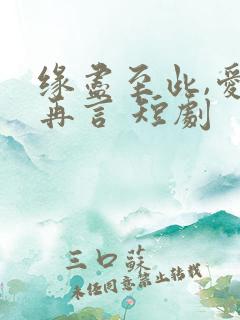 缘尽至此,爱
再言 短劇
三口蘇
未经同意禁止转载